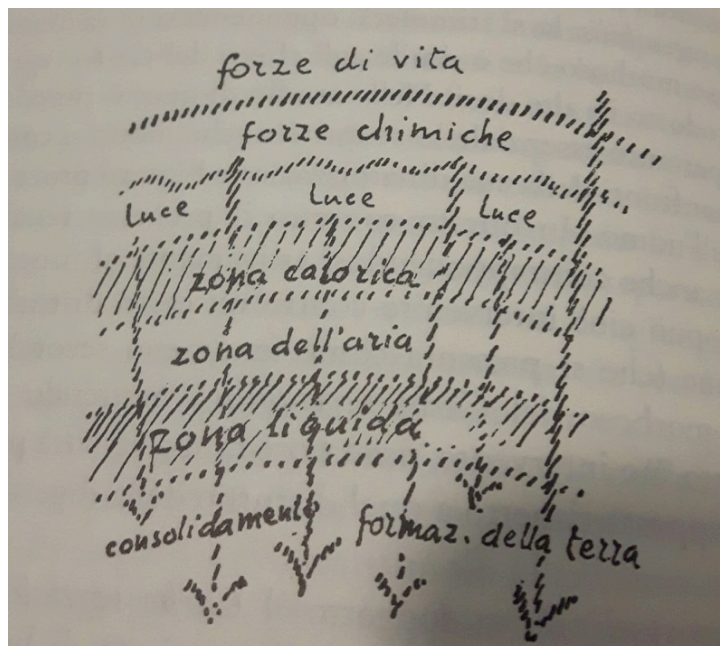 forze di vita
forze chimiche
luce luce luce
zona calorica
zona dell'aria
zona liquida
consolidamento formaz. della terra